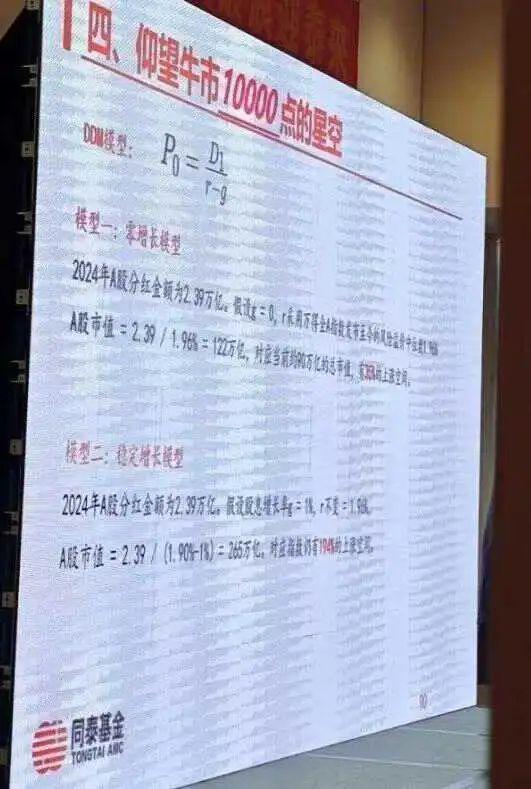 四、仰望牛市10000点的星空
DDM模型： P₀ = D1 / r-g
模型一：零增长模型
2024年A股分红金额为2.39万亿。假设g = 0，r采用万得全A指数发布至今的风险溢价中位数1.96%
A股市值 = 2.39 / 1.96% = 122万亿，对应当前约90万亿的总市值，有36%的上涨空间。
模型二：稳定增长模型
2024年A股分红金额为2.39万亿。假设股息增长率g = 1%，r不变 = 1.96%，
A股市值 = 2.39 / (1.90%-1%) = 265万亿，对应指数仍有194%的上涨空间。
同泰基金
TONGTAI AMC